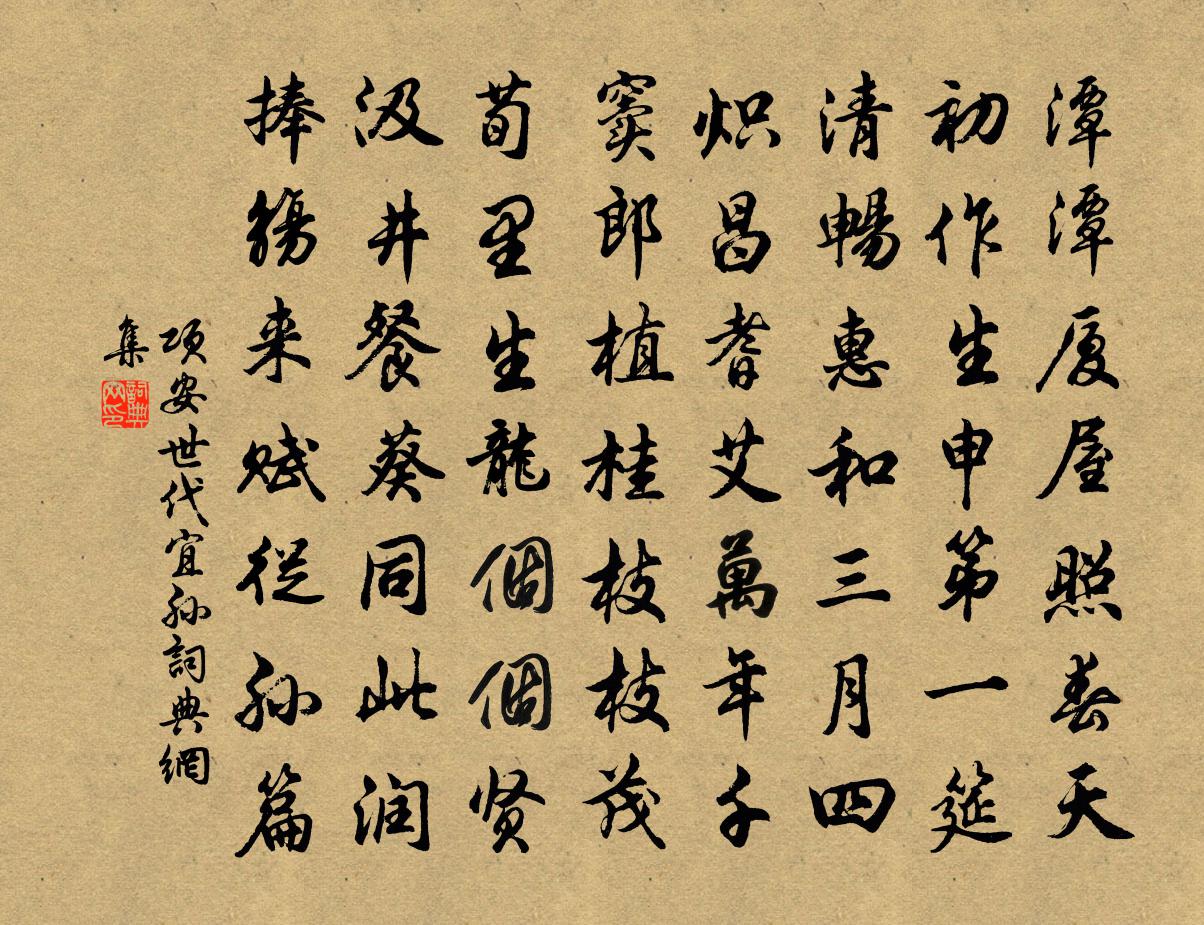 潭潭厦屋照春天
初作生申第一筵
清暢惠和三月四
炽昌耆艾萬年千
窦郎植桂枝枝茂
荀里生龍個個贤
汲井餐葵同此润
捧觞来赋從孙篇
项安世代宜孙詞典網
集
詞典网印